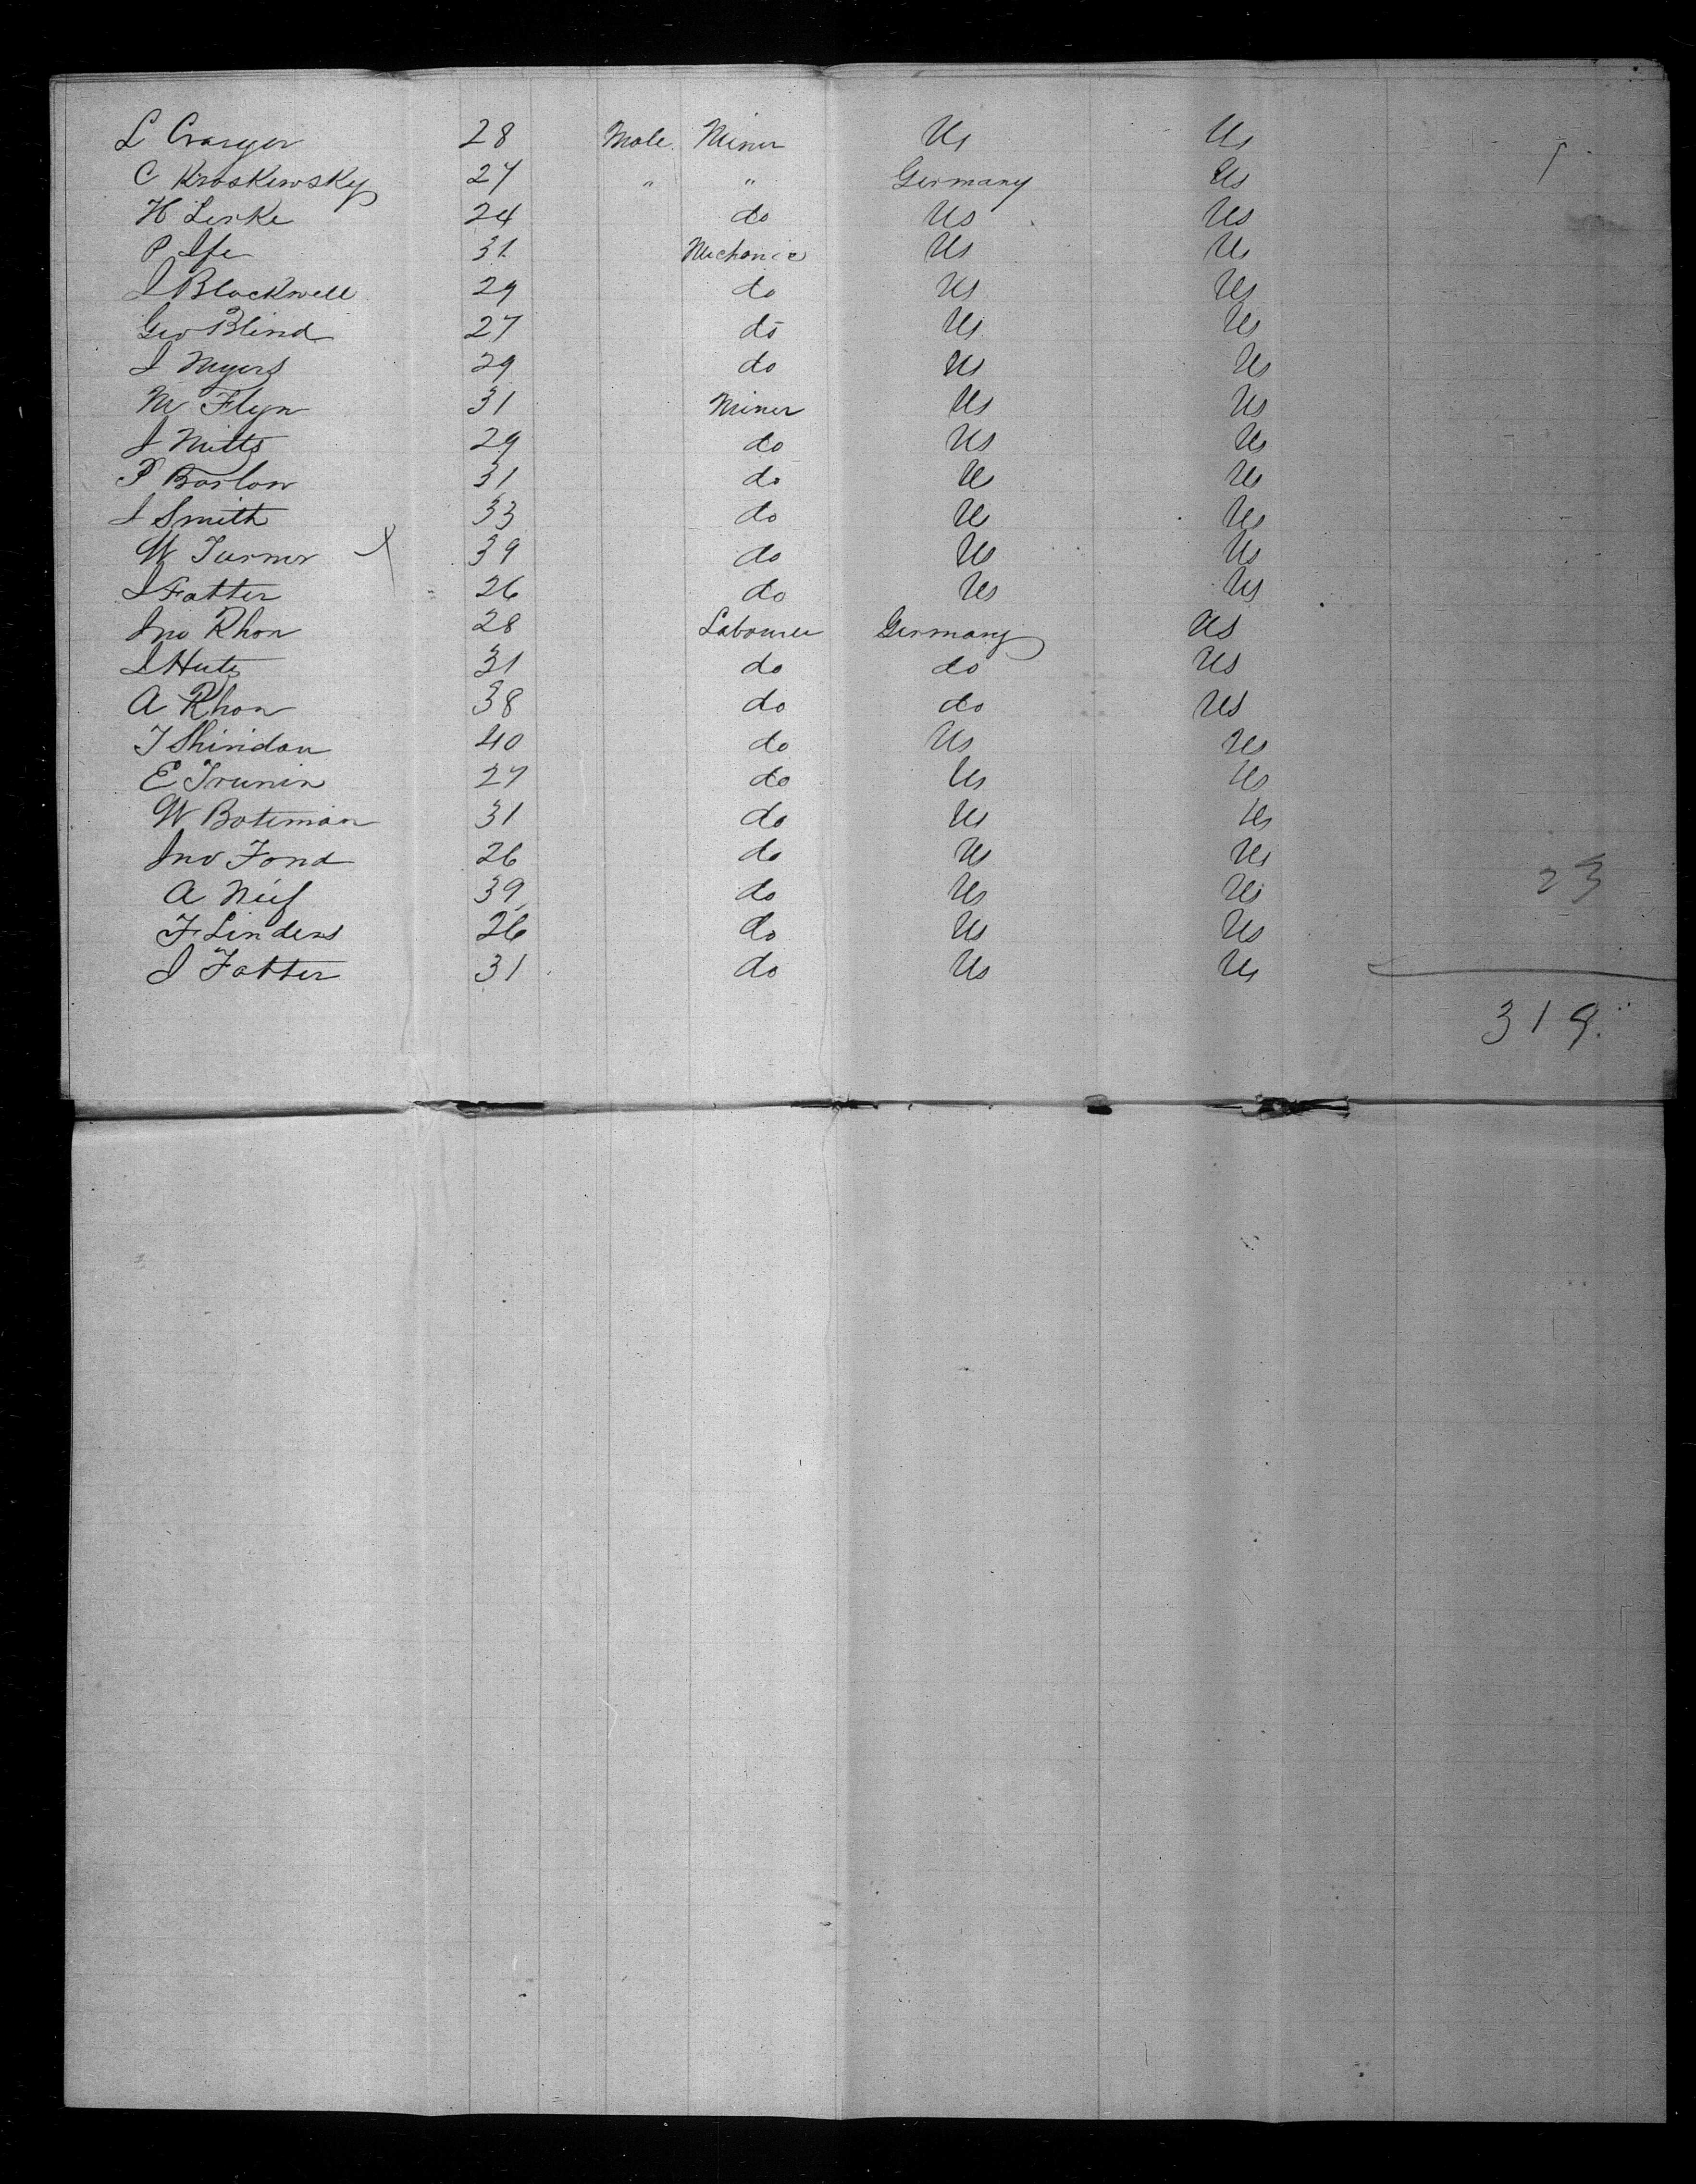 L Crayer 28 Male Miner Us Us 1
C Kraskewsky 27 " " Germany Us
H Lerke 24 do Us Us
P Ife 31 Mechanic Us Us
J Blackwell 29 do Us Us
Geo Blind 27 do Us Us
J Myers 29 do Us Us
M Flyn 31 Miner Us Us
J Mitts 29 do Us Us
P Barlow 31 do Us Us
J Smith 33 do Us Us
W Turner X 39 do Us Us
J Fatter 26 do Us Us
Jno Rhon 28 Labourer Germany Us
J Hutz 31 do do Us
A Rhon 38 do do Us
T Shiridan 40 do Us Us
E Trunin 27 do Us Us
W Bateman 31 do Us Us
Jno Fond 26 do Us Us
A Neif 39 do Us Us 23
F Linders 26 do Us Us
J Fatter 31 do Us Us
319